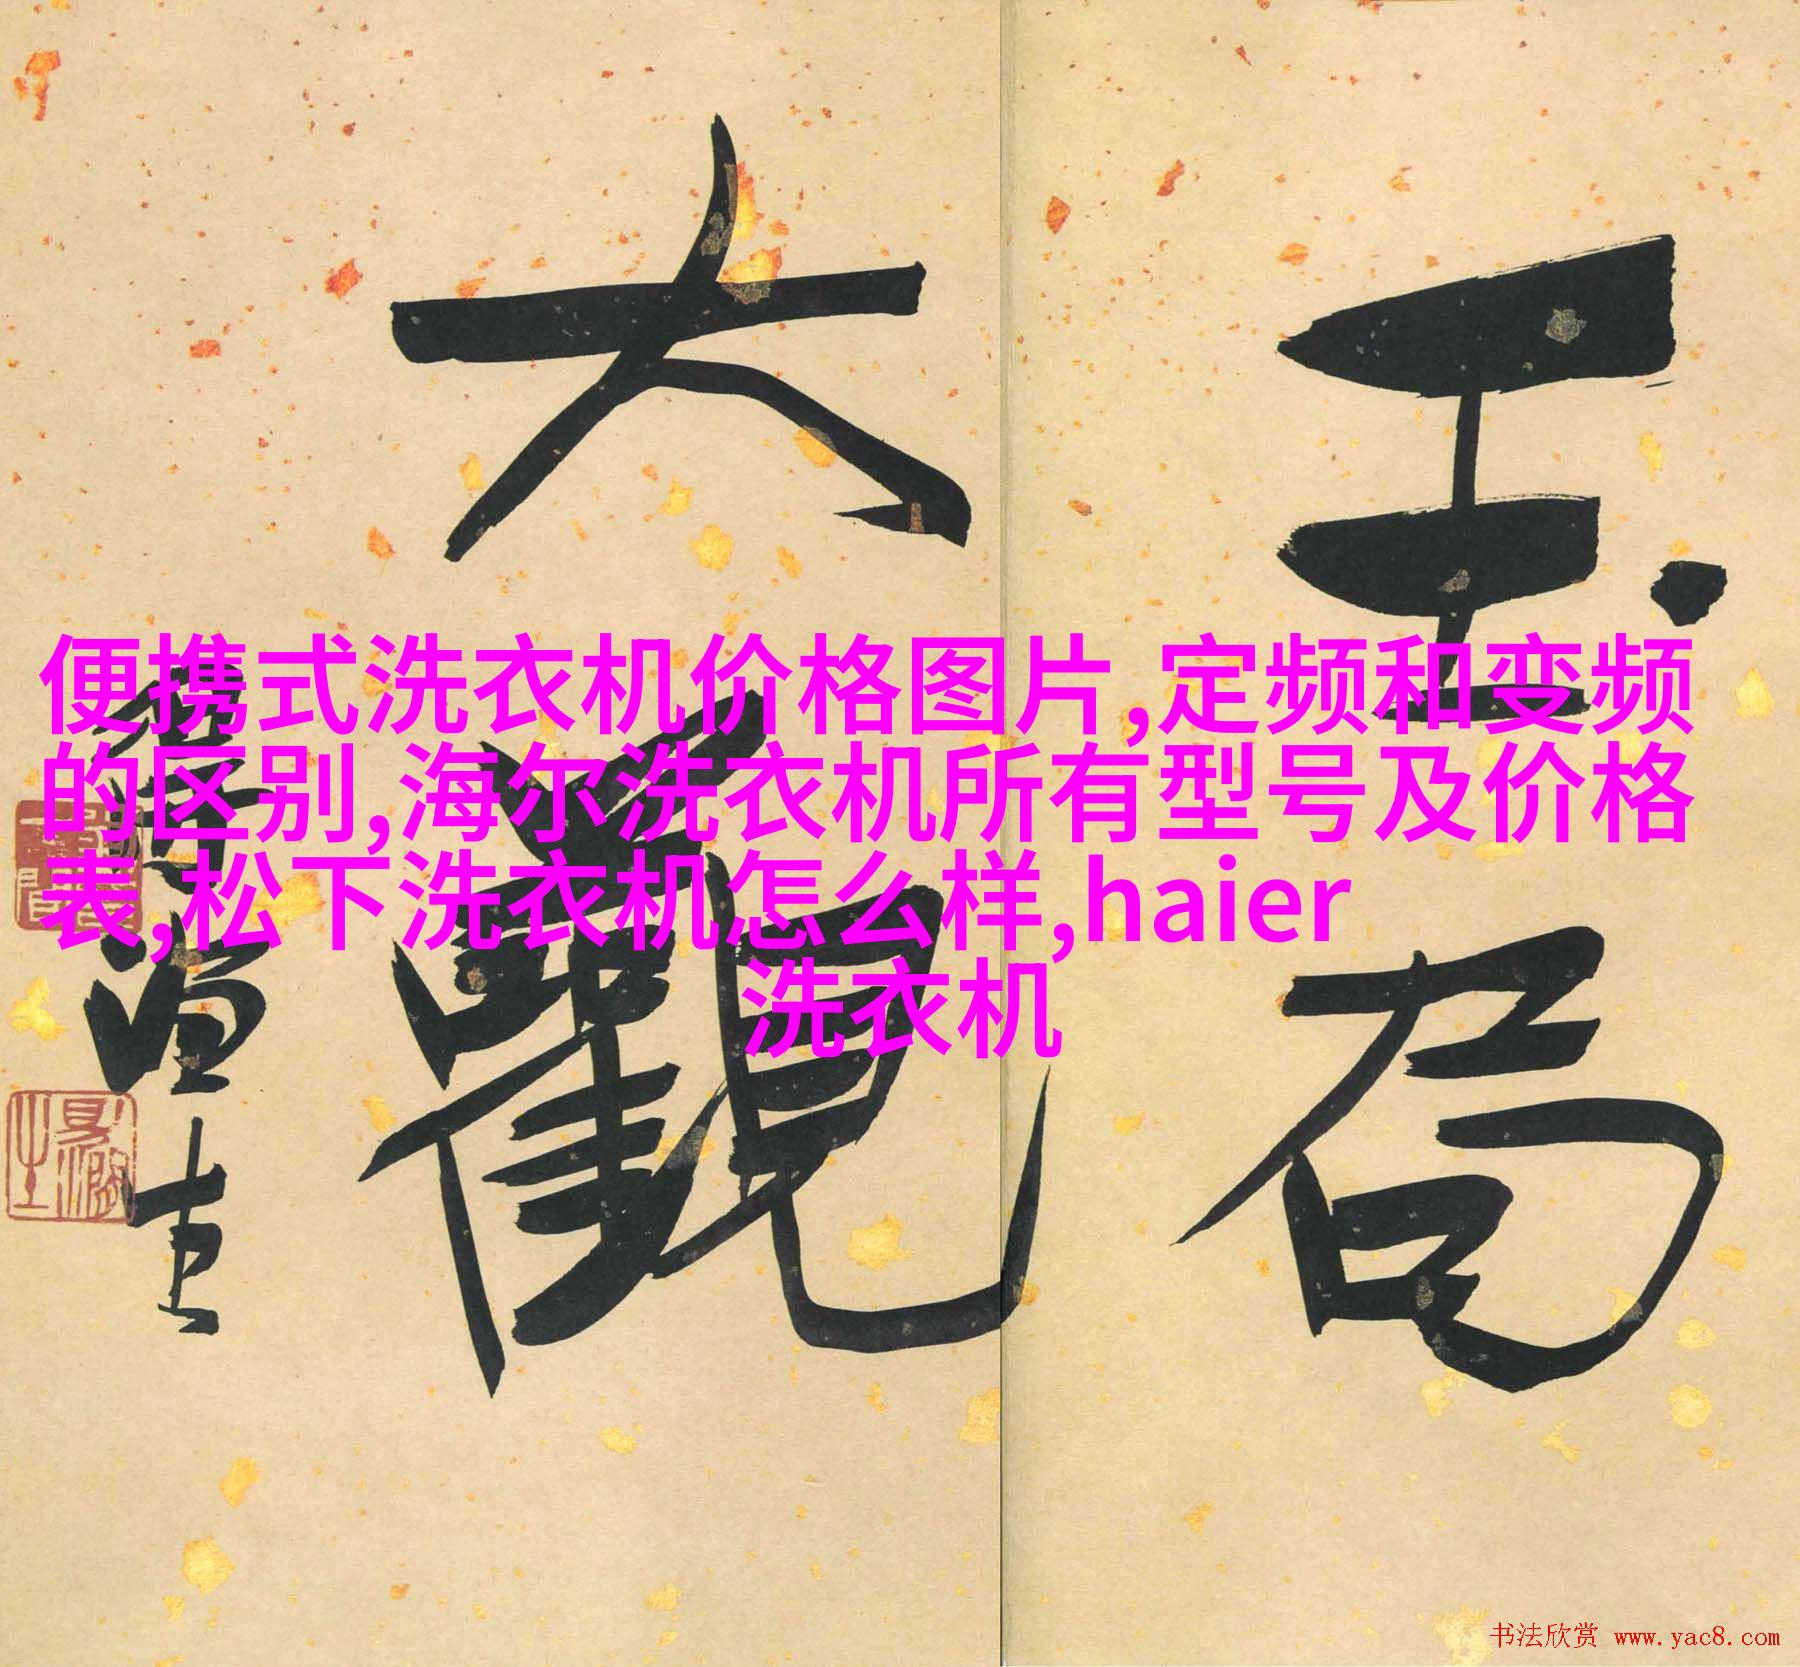 玉局
大觀
便携式洗衣机价格图片,定频和变频
的区别,海尔洗衣机所有型号及价格
表,松下洗衣机怎么样,haier
洗衣机
书法欣赏 www.yac8.com